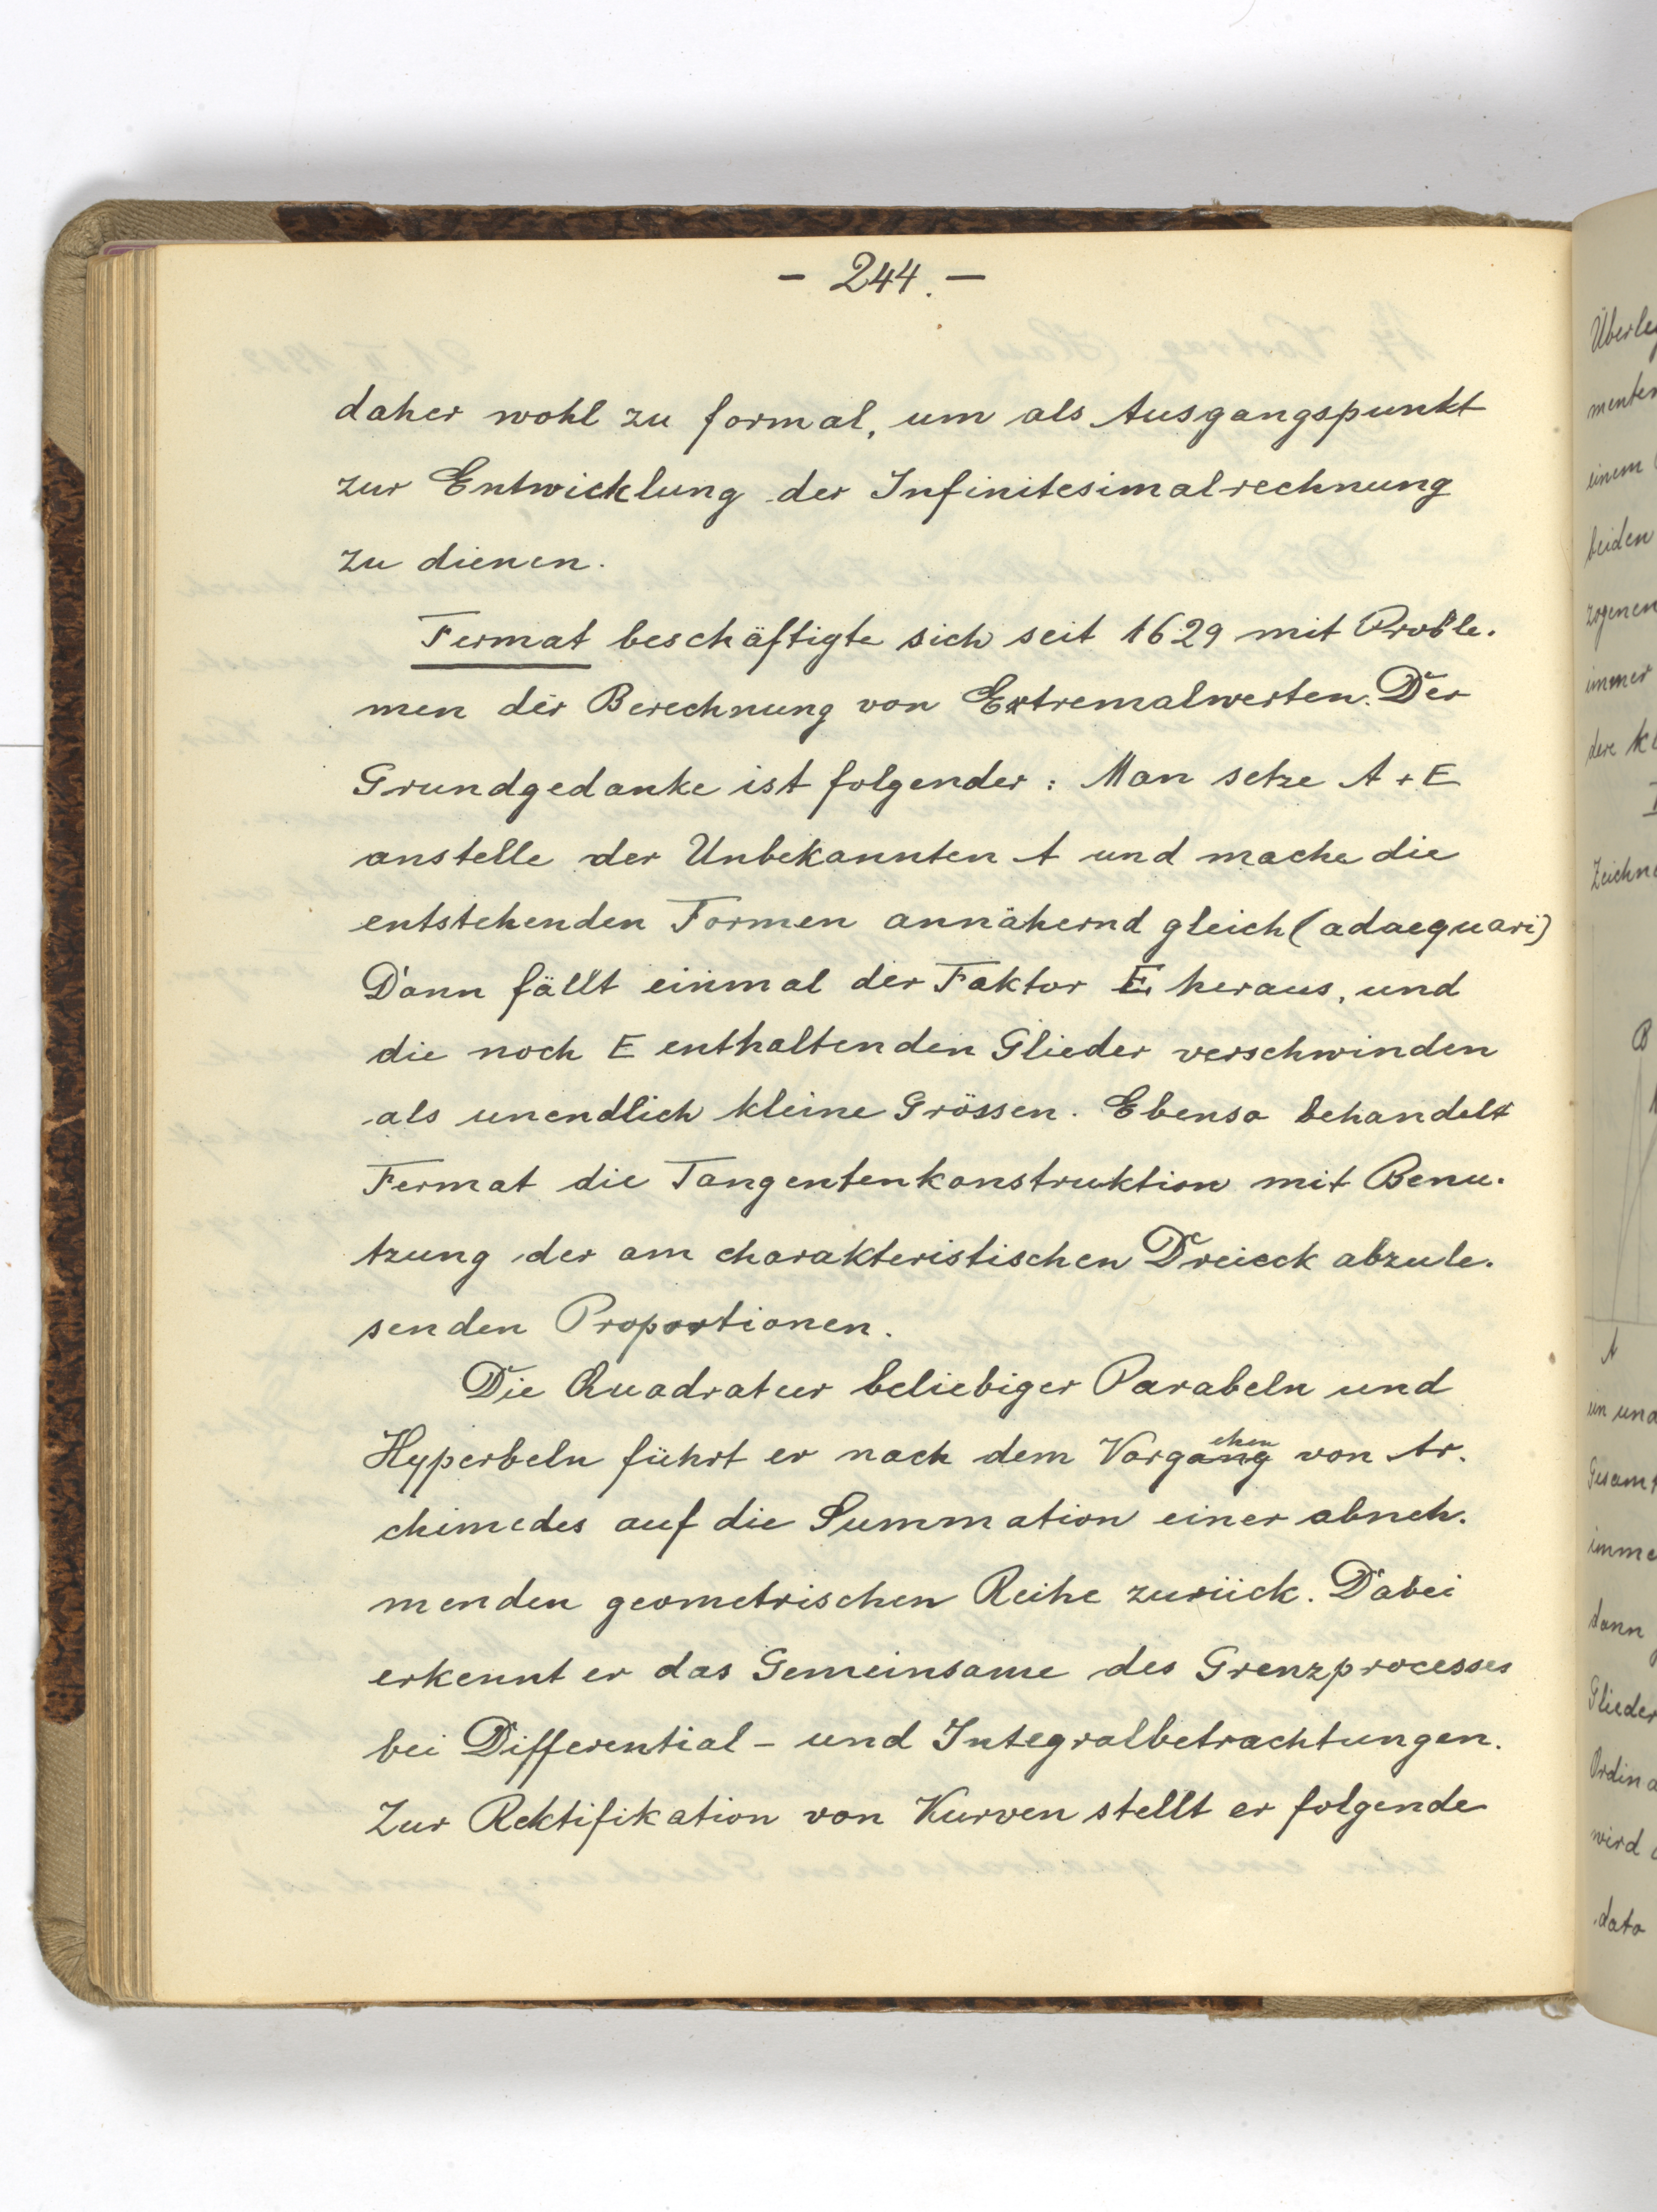 - 244. -
daher wohl zu formal, um als Ausgangspunkt
zur Entwicklung der Infinitesimalrechnung
zu dienen.
Fermat beschäftigte sich seit 1629 mit Proble-
men der Berechnung von Extremalwerten. Der
Grundgedanke ist folgender: Man setze A + E
anstelle der Unbekannten A und mache die
entstehenden Formen annähernd gleich (adaequari)
Dann fällt einmal der Faktor E heraus, und
die noch E enthaltenden Glieder verschwinden
als unendlich kleine Grössen. Ebenso behandelt
Fermat die Tangentenkonstruktion mit Benu-
tzung der am charakteristischen Dreieck abzule-
senden Proportionen.
Die Quadratur beliebiger Parabeln und
Hyperbeln führt er nach dem Vorgehen von Ar-
chimedes auf die Summation einer abneh-
menden geometrischen Reihe zurück. Dabei
erkennt er das Gemeinsame des Grenzprocesses
bei Differential- und Integralbetrachtungen.
Zur Rektifikation von Kurven stellt er folgende
menten
einem
beiden
zogenen
immer
B
A
dann
Glieder
wird